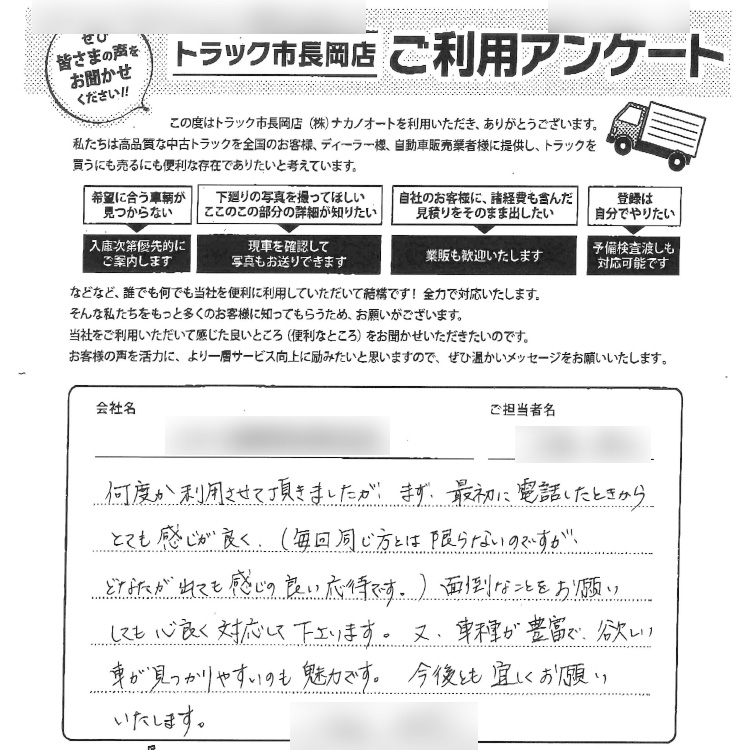 ぜひ
皆さまの声を
お聞かせ
ください!!
トラック市長岡店 ご利用アンケート
この度はトラック市長岡店(株)ナカノオートを利用いただき、ありがとうございます。
私たちは高品質な中古トラックを全国のお客様、ディーラー様、自動車販売業者様に提供し、トラックを
買うにも売るにも便利な存在でありたいと考えています。
希望に合う車輌が
見つからない
入庫次第優先的に
ご案内します
下廻りの写真を撮ってほしい
ここのこの部分の詳細が知りたい
現車を確認して
写真もお送りできます
自社のお客様に、諸経費も含んだ
見積りをそのまま出したい
業販も歓迎いたします
登録は
自分でやりたい
予備検査渡しも
対応可能です
などなど、誰でも何でも当社を便利に利用していただいて結構です!全力で対応いたします。
そんな私たちをもっと多くのお客様に知ってもらうため、お願いがございます。
当社をご利用いただいて感じた良いところ(便利なところ)をお聞かせいただきたいのです。
お客様の声を活力に、より一層サービス向上に励みたいと思いますので、ぜひ温かいメッセージをお願いいたします。
会社名 ご担当者名
何度か利用させて頂きましたが、まず、最初に電話したときから
とても感じが良く、(毎回同じ方とは限らないのですが、
どなたが出ても感じの良い応待です。)面倒なことをお願い
しても心良く対応して下さいます。又、車種が豊富で、欲しい
車が見つかりやすいのも魅力です。今後とも宜しくお願い
いたします。